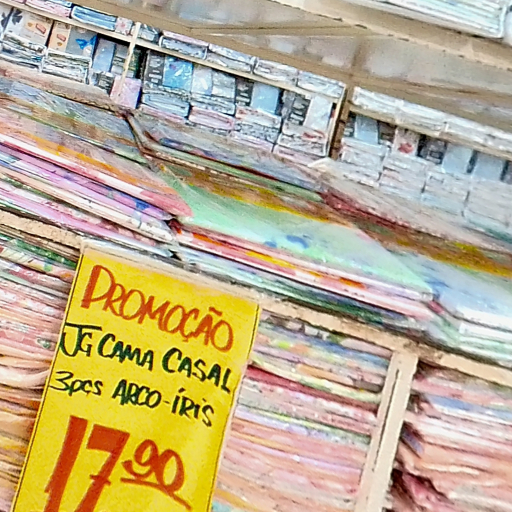 PROMOÇÃO
JG CAMA CASAL
3pçs ARCO-ÍRIS
17,90